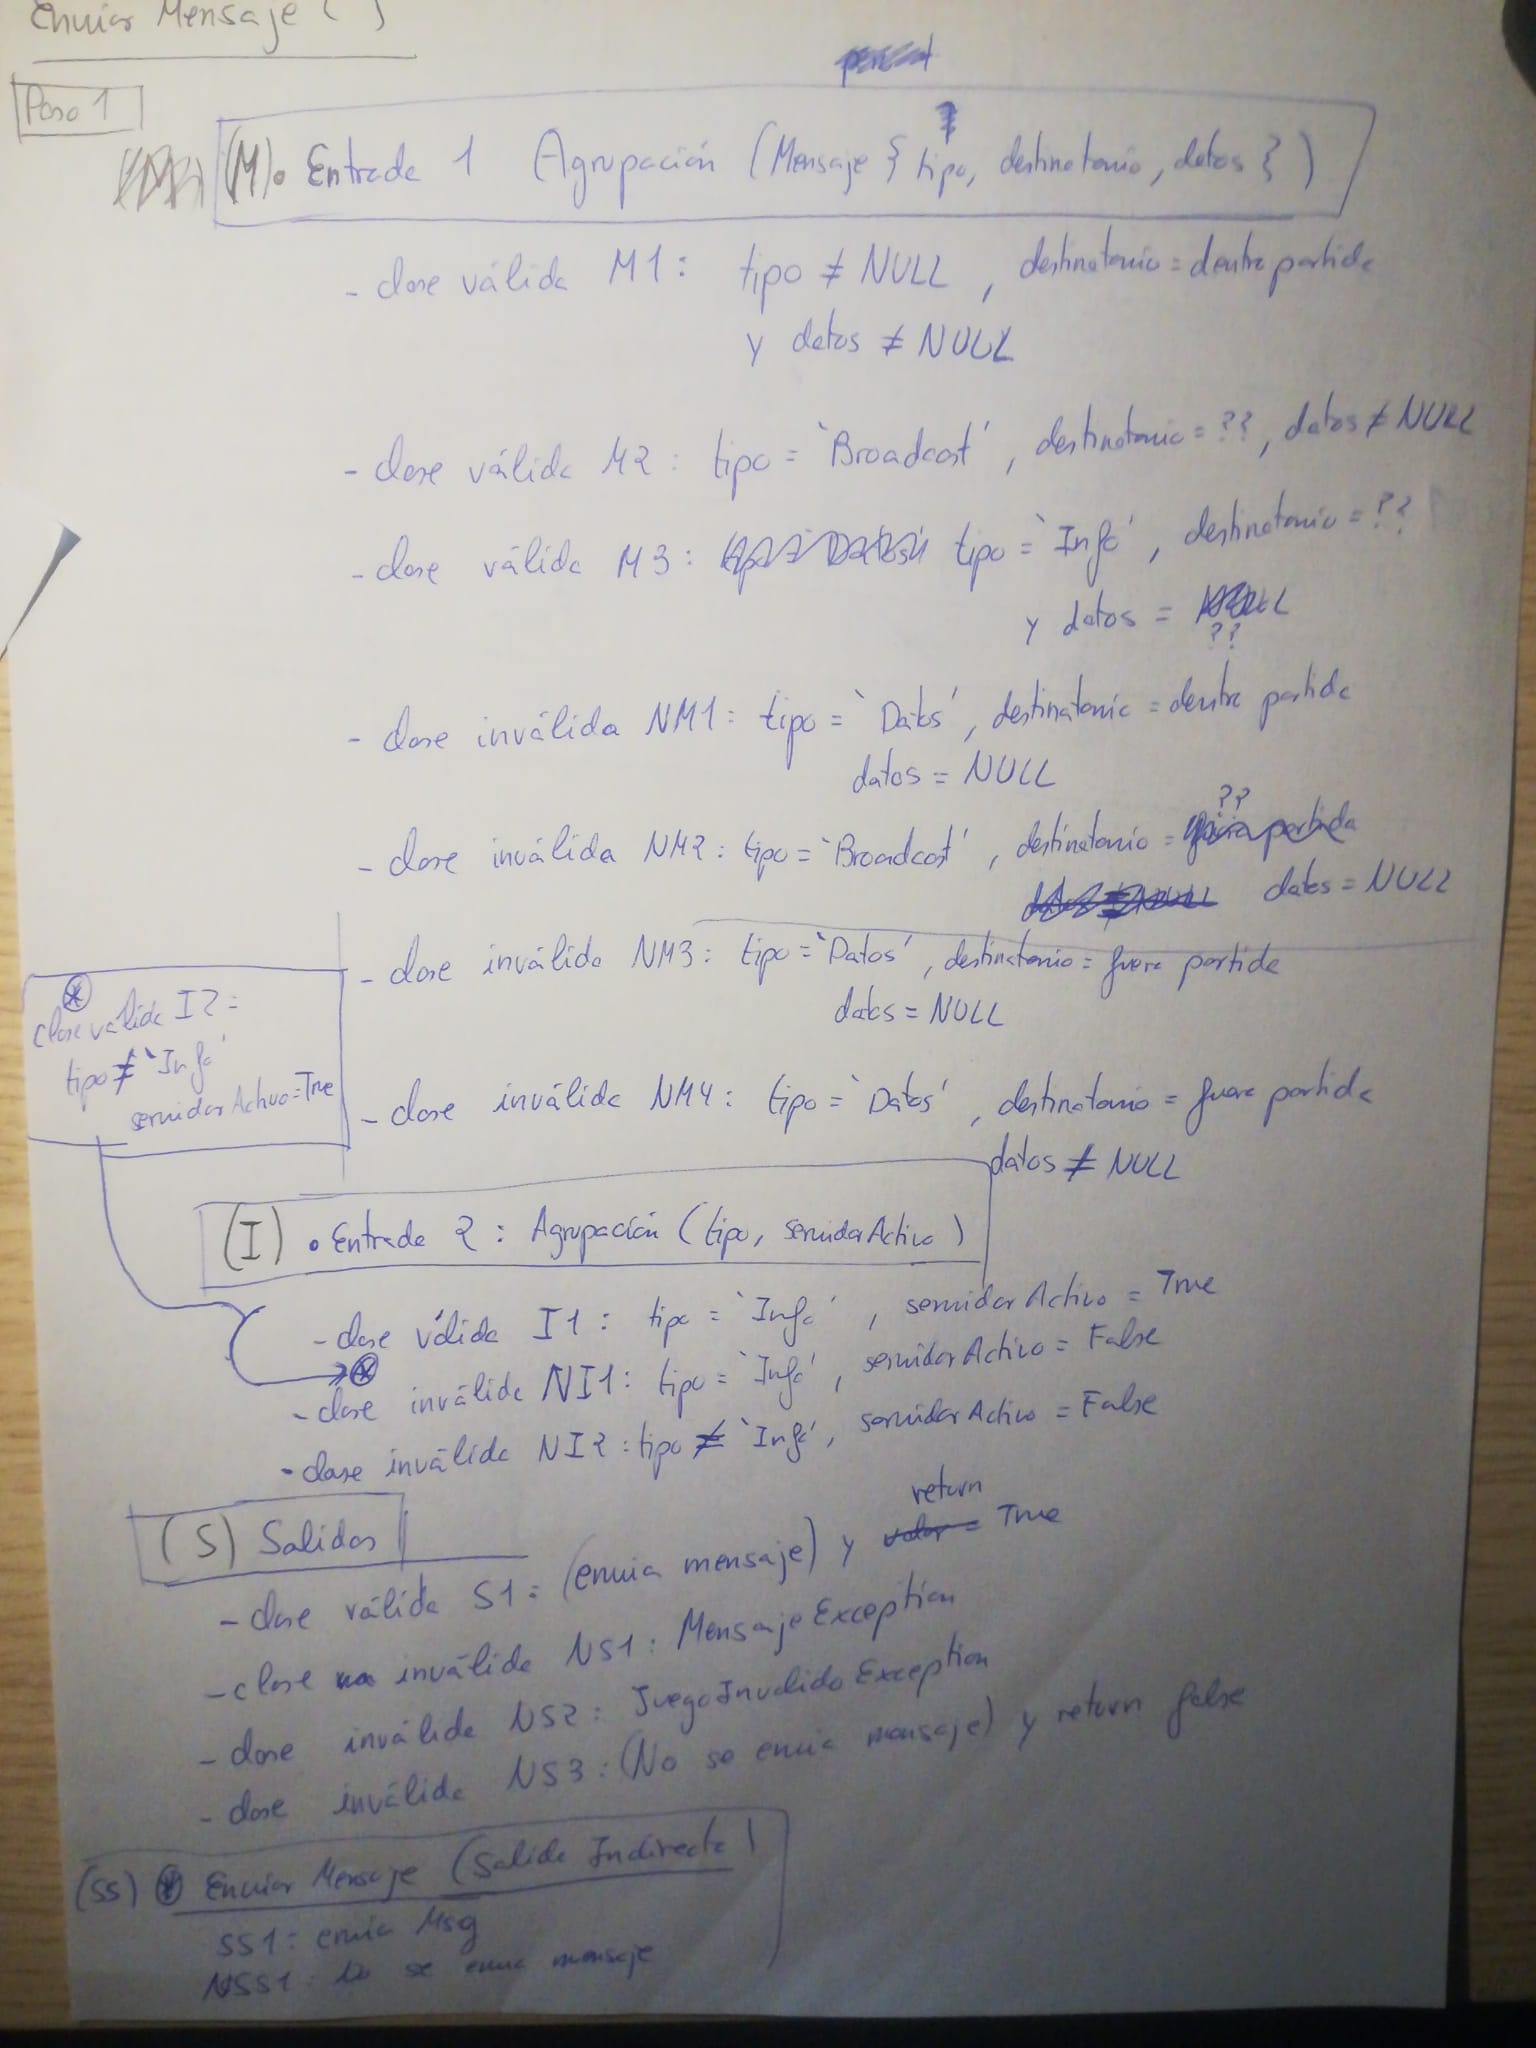 Enviar Mensaje ( )
Paso 1
(M). Entrada 1 Agrupación (Mensaje { tipo, destinatario, datos } )
- clase válida M1: tipo ≠ NULL, destinatario = dentro partida
y datos ≠ NULL
- clase válida M2: tipo = 'Broadcast', destinatario = ??, datos ≠ NULL
- clase válida M3: tipo = 'Info', destinatario = ??
y datos =
??
- clase inválida NM1: tipo = 'Datos', destinatario = dentro partida
datos = NULL
??
- clase inválida NM2: tipo = 'Broadcast', destinatario = fuera partida
datos = NULL
- clase inválida NM3: tipo = 'Datos', destinatario = fuera partida
datos = NULL
- clase inválida NM4: tipo = 'Datos', destinatario = fuera partida
datos ≠ NULL
clase válida I2:
tipo ≠ 'Info'
servidorActivo = True
(I) • Entrada 2 : Agrupación (tipo, servidorActivo)
- clase válida I1: tipo = 'Info', servidorActivo = True
- clase inválida NI1: tipo = 'Info', servidorActivo = False
- clase inválida NI2: tipo ≠ 'Info', servidorActivo = False
(S) Salidas
return
- clase válida S1: (envia mensaje) y valor = True
- clase inválida NS1: MensajeException
- clase inválida NS2: JuegoInvalidoException
- clase inválida NS3: (No se envia mensaje) y return false
(SS) Enviar Mensaje (Salida Indirecta)
SS1: envia Msg
NSS1: No se envia mensaje